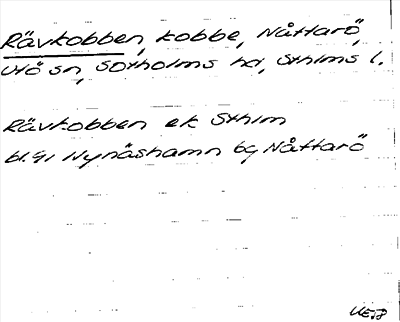 Rävkobben, kobbe, Nåttarö,
Utö sn, Sotholms hd, Sthlms l.
Rävkobben ek Sthlm
bl. 91 Nynäshamn bg Nåttarö